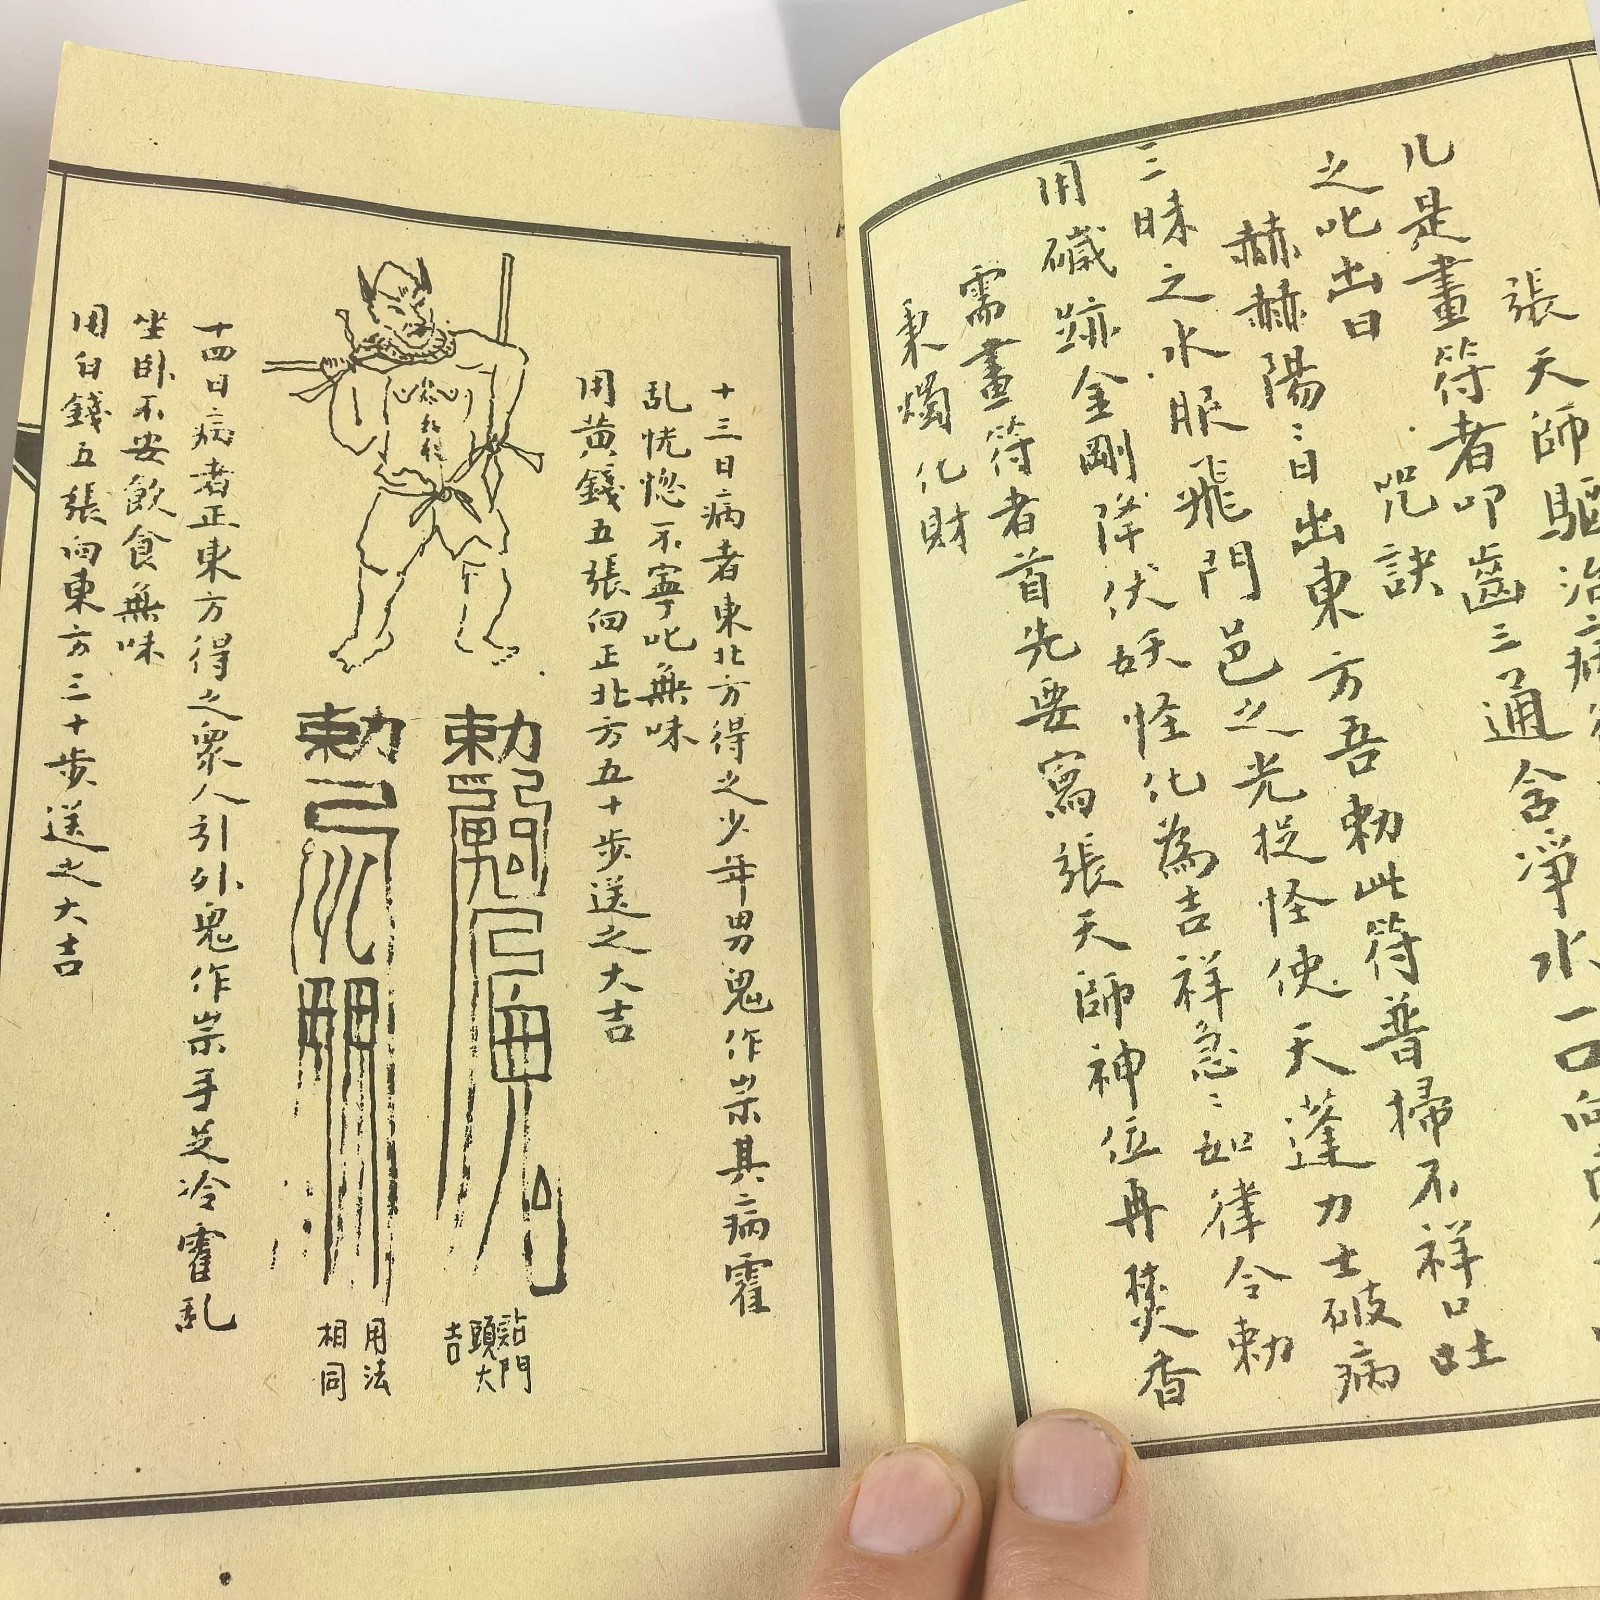 張天師驅治病
凡是畫符者叩齒三通含淨水一口向
之叱出曰
咒訣
赫赫陽陽日出東方吾勅此符普掃不祥口吐
三昧之水眼飛門邑之光捉怪使天蓬力士破病
用礆跡金剛降伏妖怪化為吉祥急急如律令勅
需畫符者首先要寫張天師神位再焚香
秉燭化財
十三日病者東北方得之少年男鬼作祟其病霍
乱恍惚不寧叱無味
用黄錢五張向正北方五十步送之大吉
勅
貼門頭大吉
勅
用法相同
十四日病者正東方得之眾人引外鬼作祟手芝冷霍乱
坐卧不安飲食無味
用白錢五張向東方三十步送之大吉